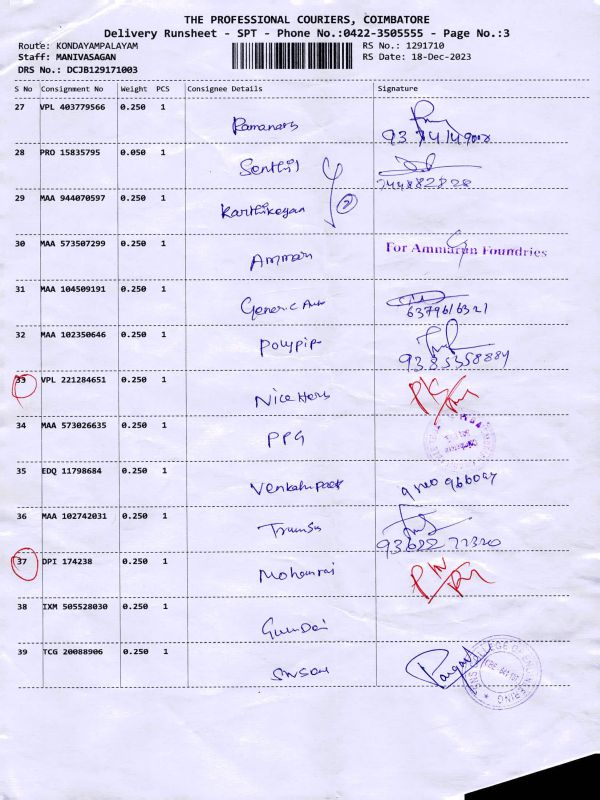 THE PROFESSIONAL COURIERS, COIMBATORE
Delivery Runsheet - SPT - Phone No.:0422-3505555 - Page No.:3
Route: KONDAYAMPALAYAM RS No.: 1291710
Staff: MANIVASAGAN RS Date: 18-Dec-2023
DRS No.: DCJB129171003
S No Consignment No Weight PCS Consignee Details Signature
27 VPL 403779566 0.250 1
28 PRO 15835795 0.050 1 Senthil
29 MAA 944070597 0.250 1 Karthikeyan 2
30 MAA 573507299 0.250 1 Amman For Ammarun Foundries
31 MAA 104509191 0.250 1 6379616321
32 MAA 102350646 0.250 1 Polypip 9385358884
33 VPL 221284651 0.250 1
34 MAA 573026635 0.250 1 PPG
35 EDQ 11798684 0.250 1
36 MAA 102742031 0.250 1
37 DPI 174238 0.250 1 Mohanraj
38 IXM 505528030 0.250 1
39 TCG 20088906 0.250 1